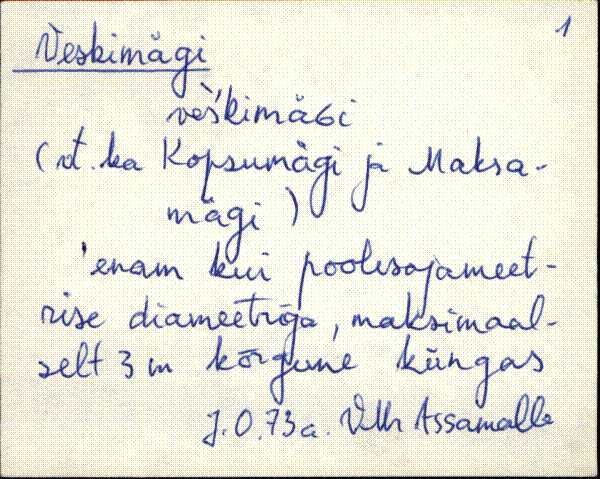 1
Veskimägi
veš́kimäɢi
(vt. ka Kopsumägi ja Maksa-
mägi)
'enam kui poolesajameet-
rise diameetriga, maksimaal-
selt 3 m kõrgune küngas
J. O. 73 a. VMr Assamalla